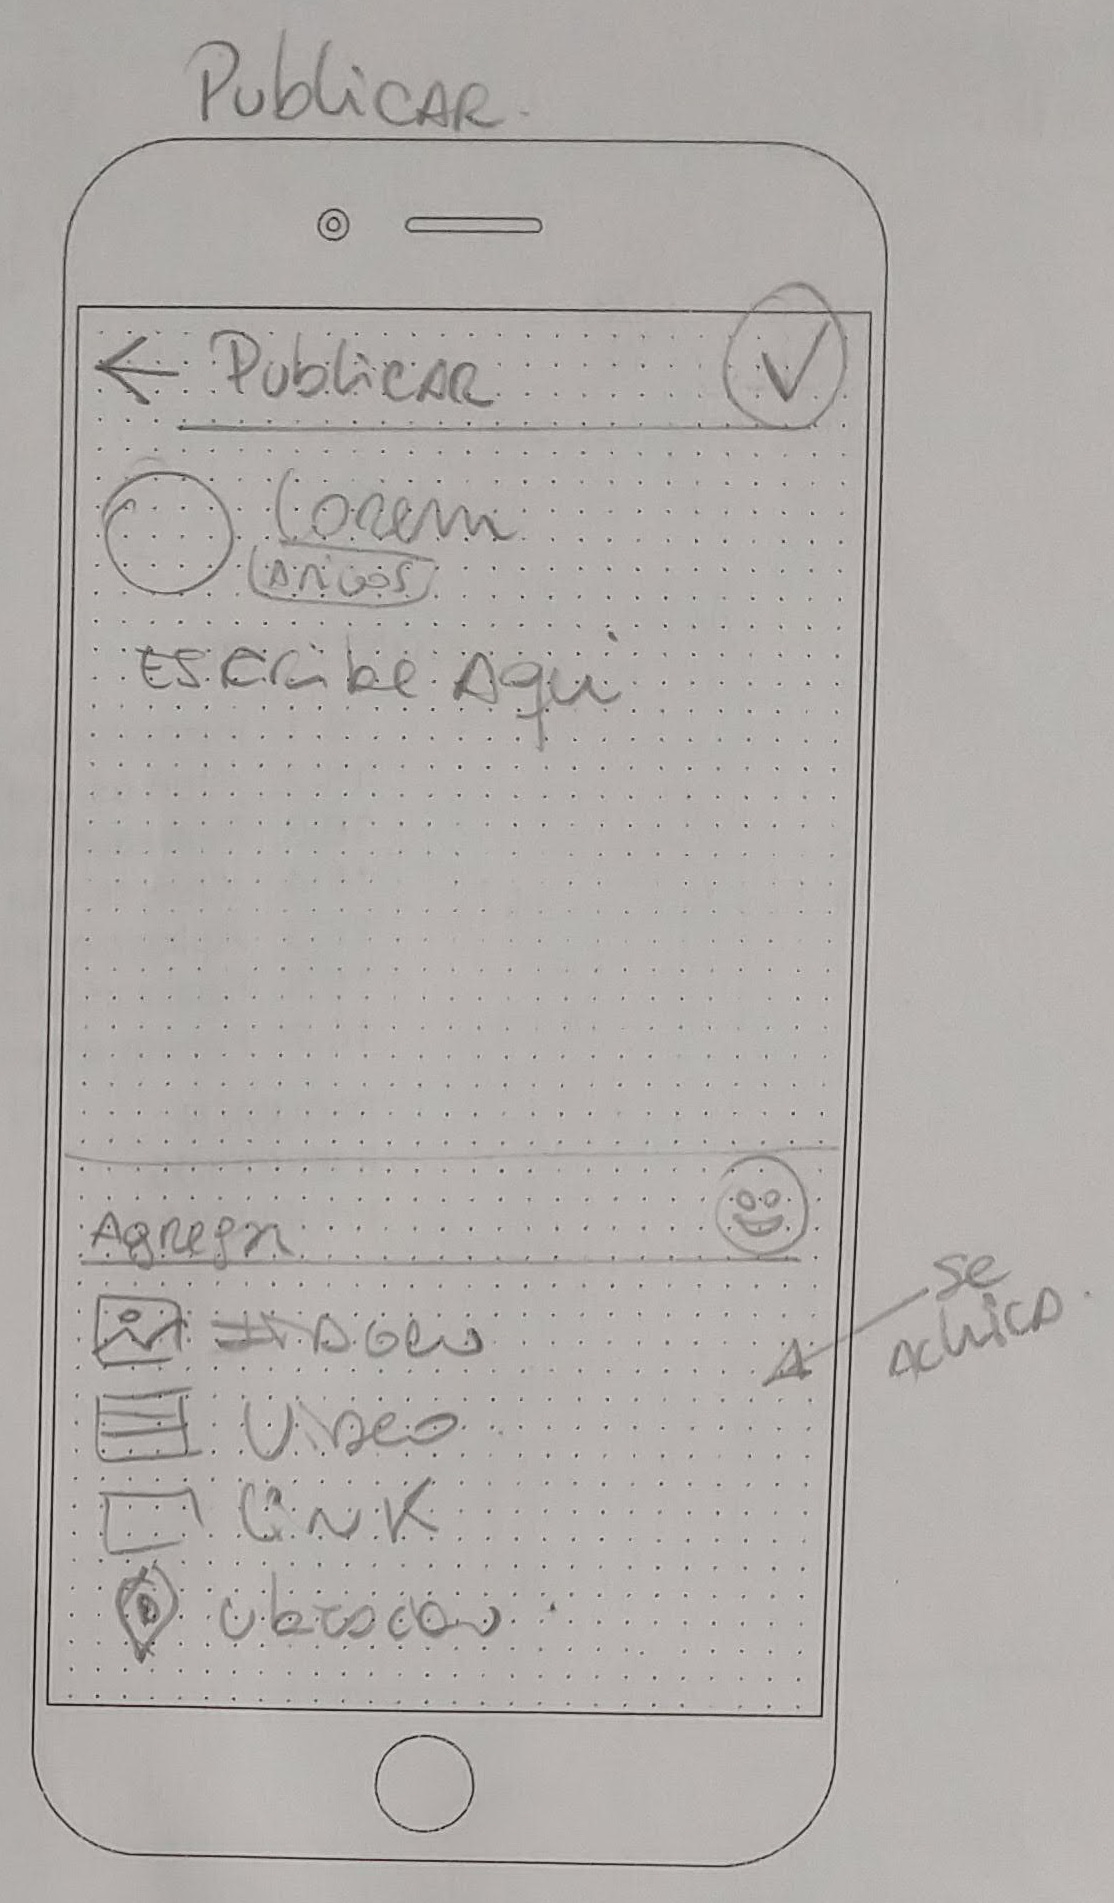 Publicar.
Publicar
Lorem
Amigos
Escribe Aquí
Agregar
Imagen
Video
Link
Ubicación
se
achica.